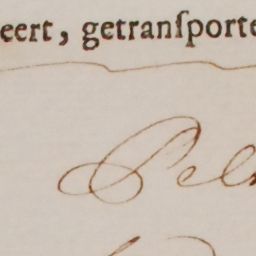 eert, getranſporte
Pel